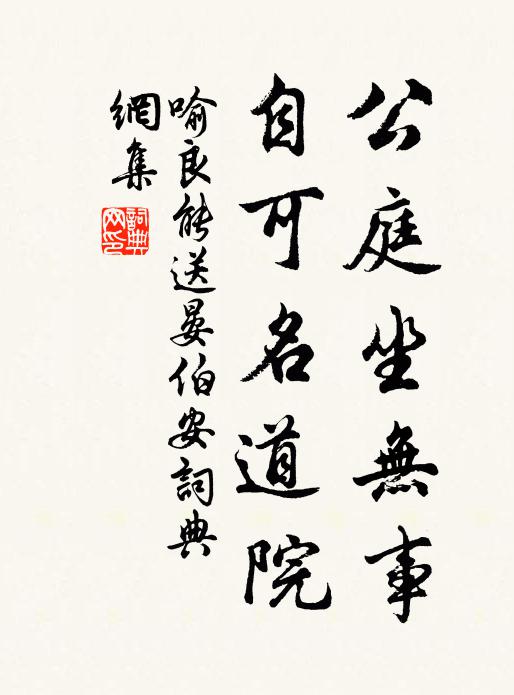 公庭坐無事
自可名道院
喻良能送晏伯安詞典
網集
詞典
网印